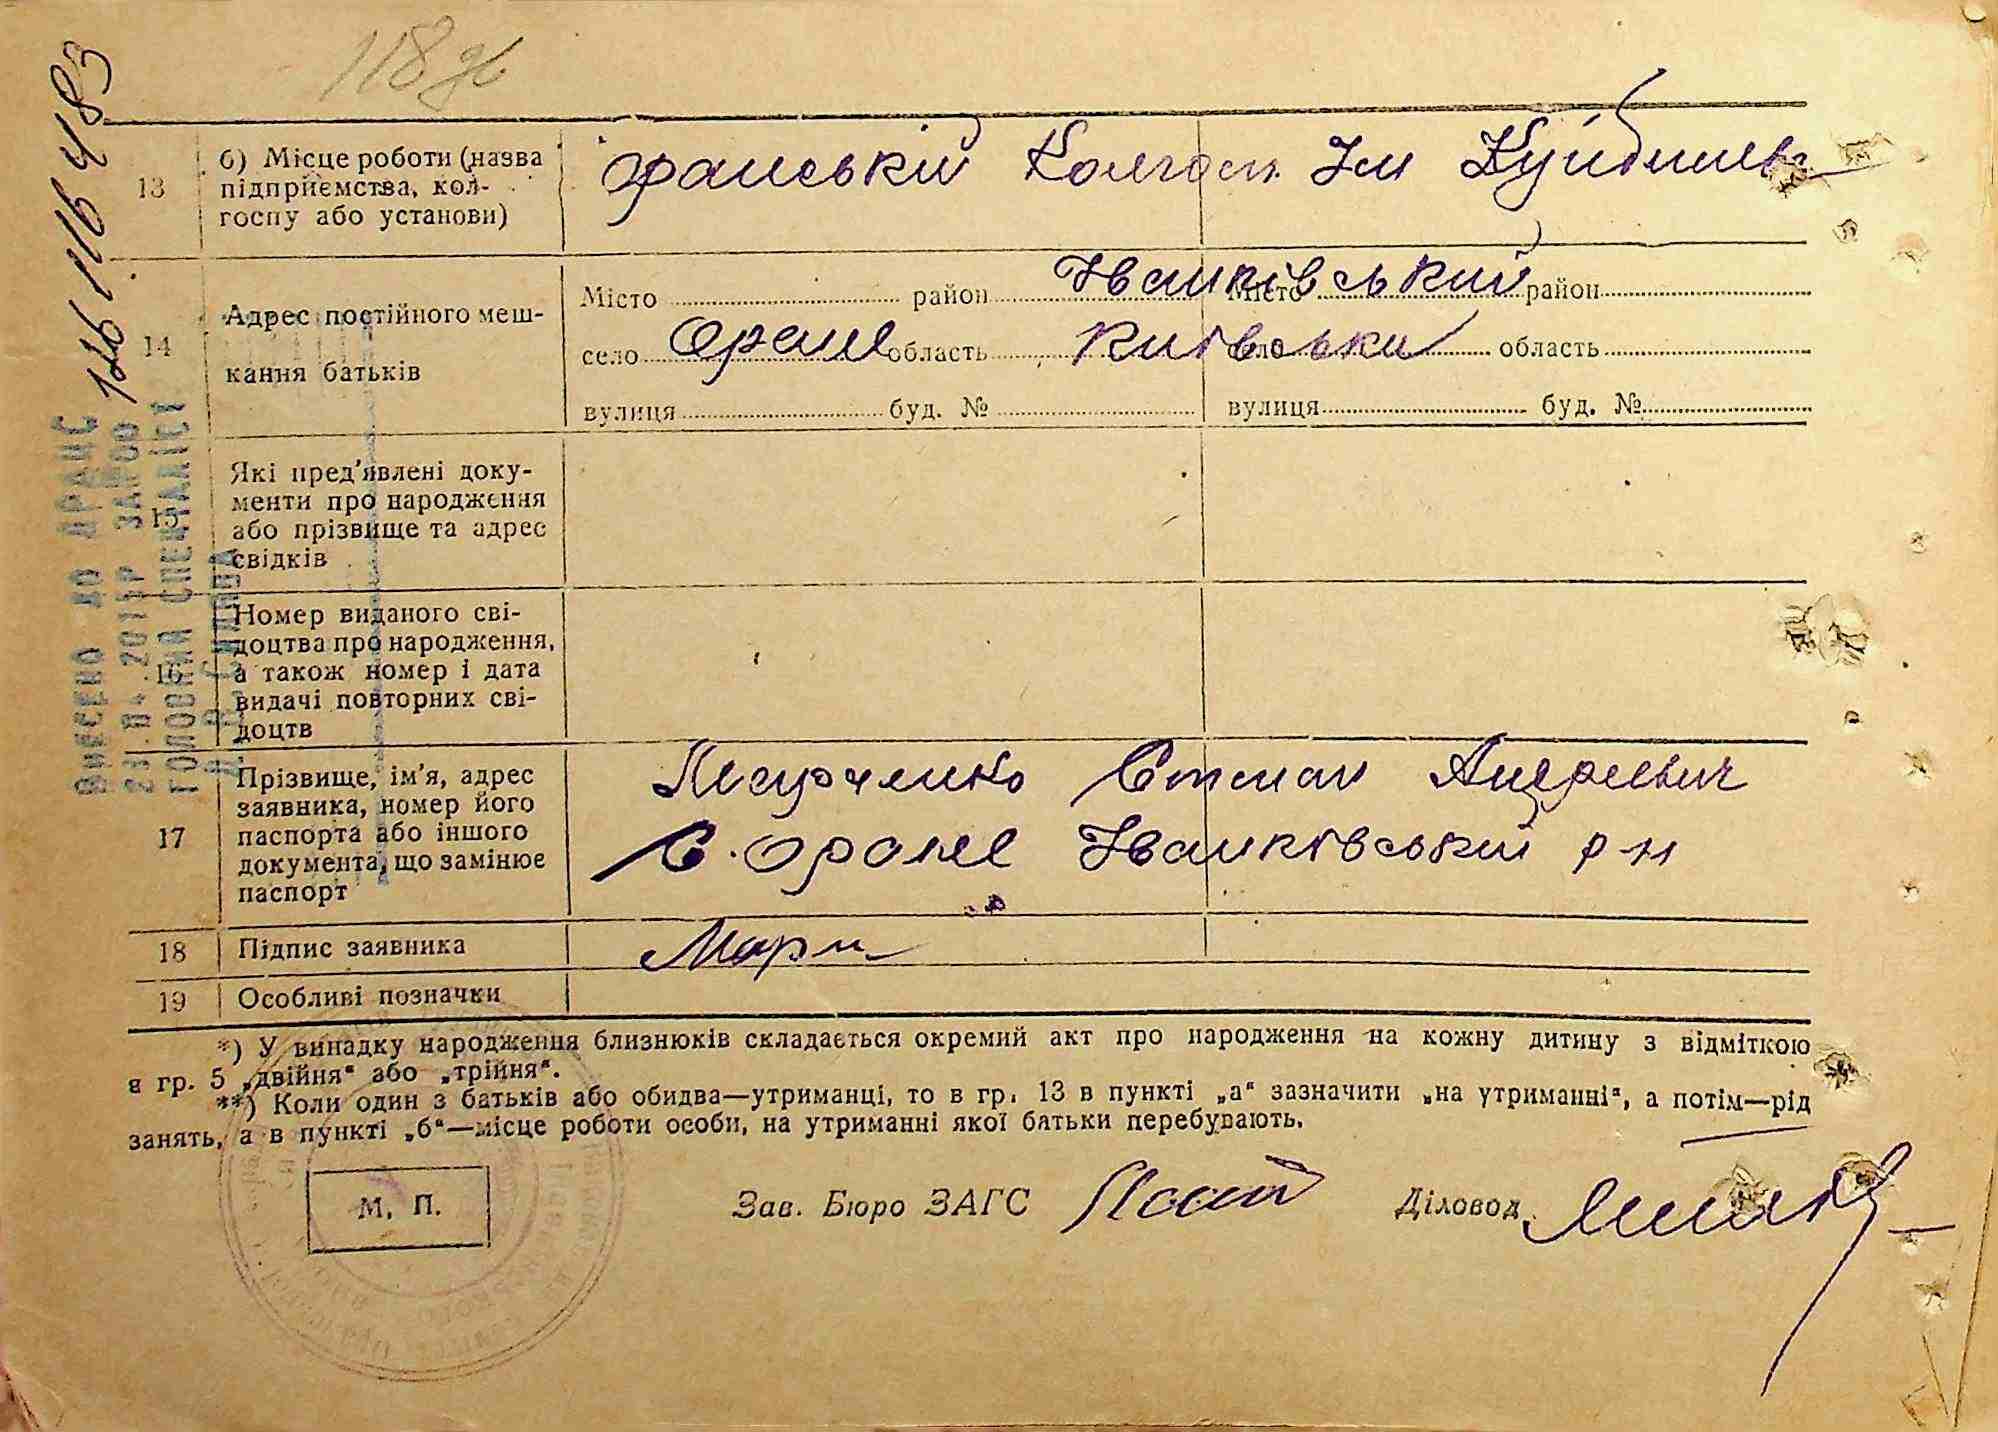 118 зв
126 116 483
13 б) Місце роботи (назва підприємства, кол-
госпу або установи)
Оранський Колгосп. Ім Куйбишева
14 Адрес постійного меш-
кання батьків
Місто район Іванківський Місто район
село Оране область Київська село область
вулиця буд. № вулиця буд. №
15 Які пред'явлені доку-
менти про народження
або прізвище та адрес
свідків
16 Номер виданого сві-
доцтва про народження,
а також номер і дата
видачі повторних сві-
доцтв
17 Прізвище, ім'я, адрес
заявника, номер його
паспорта або іншого
документа, що замінює
паспорт
Степан Андреевич
С. Оране Іванківський р-н
18 Підпис заявника
19 Особливі позначки
*) У випадку народження близнюків складається окремий акт про народження на кожну дитину з відміткою
в гр. 5 „двійня" або „трійня".
**) Коли один з батьків або обидва—утриманці, то в гр. 13 в пункті „а" зазначити „на утриманні", а потім—рід
занять, а в пункті „б"—місце роботи особи, на утриманні якої батьки перебувають.
М. П.
Зав. Бюро ЗАГС
Діловод
ВНЕСЕНО ДО ДРАЦС
ГОЛОВНИЙ СПЕЦІАЛІСТ